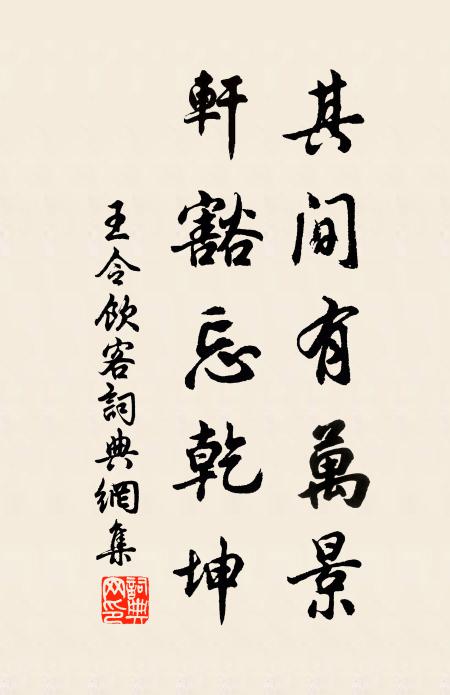 其間有萬景
軒豁忘乾坤
王令飲客詞典網集
詞典網印